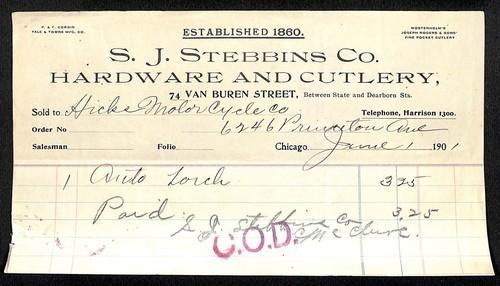 ESTABLISHED 1860.
P. & F. CORBIN
YALE & TOWNE MFG. CO.
WOSTENHOLM'S
JOSEPH RODGERS & SONS'
FINE POCKET CUTLERY
S. J. STEBBINS CO.
HARDWARE AND CUTLERY,
74 VAN BUREN STREET, Between State and Dearborn Sts.
Sold to Hicks Motor Cycle Co Telephone, Harrison 1300.
Order No 6246 Princeton Ave
Salesman Folio Chicago, June 1 1901
1 Auto Torch 3 25
Paid 3.25
S. J. Stebbins Co
McClure
C.O.D.